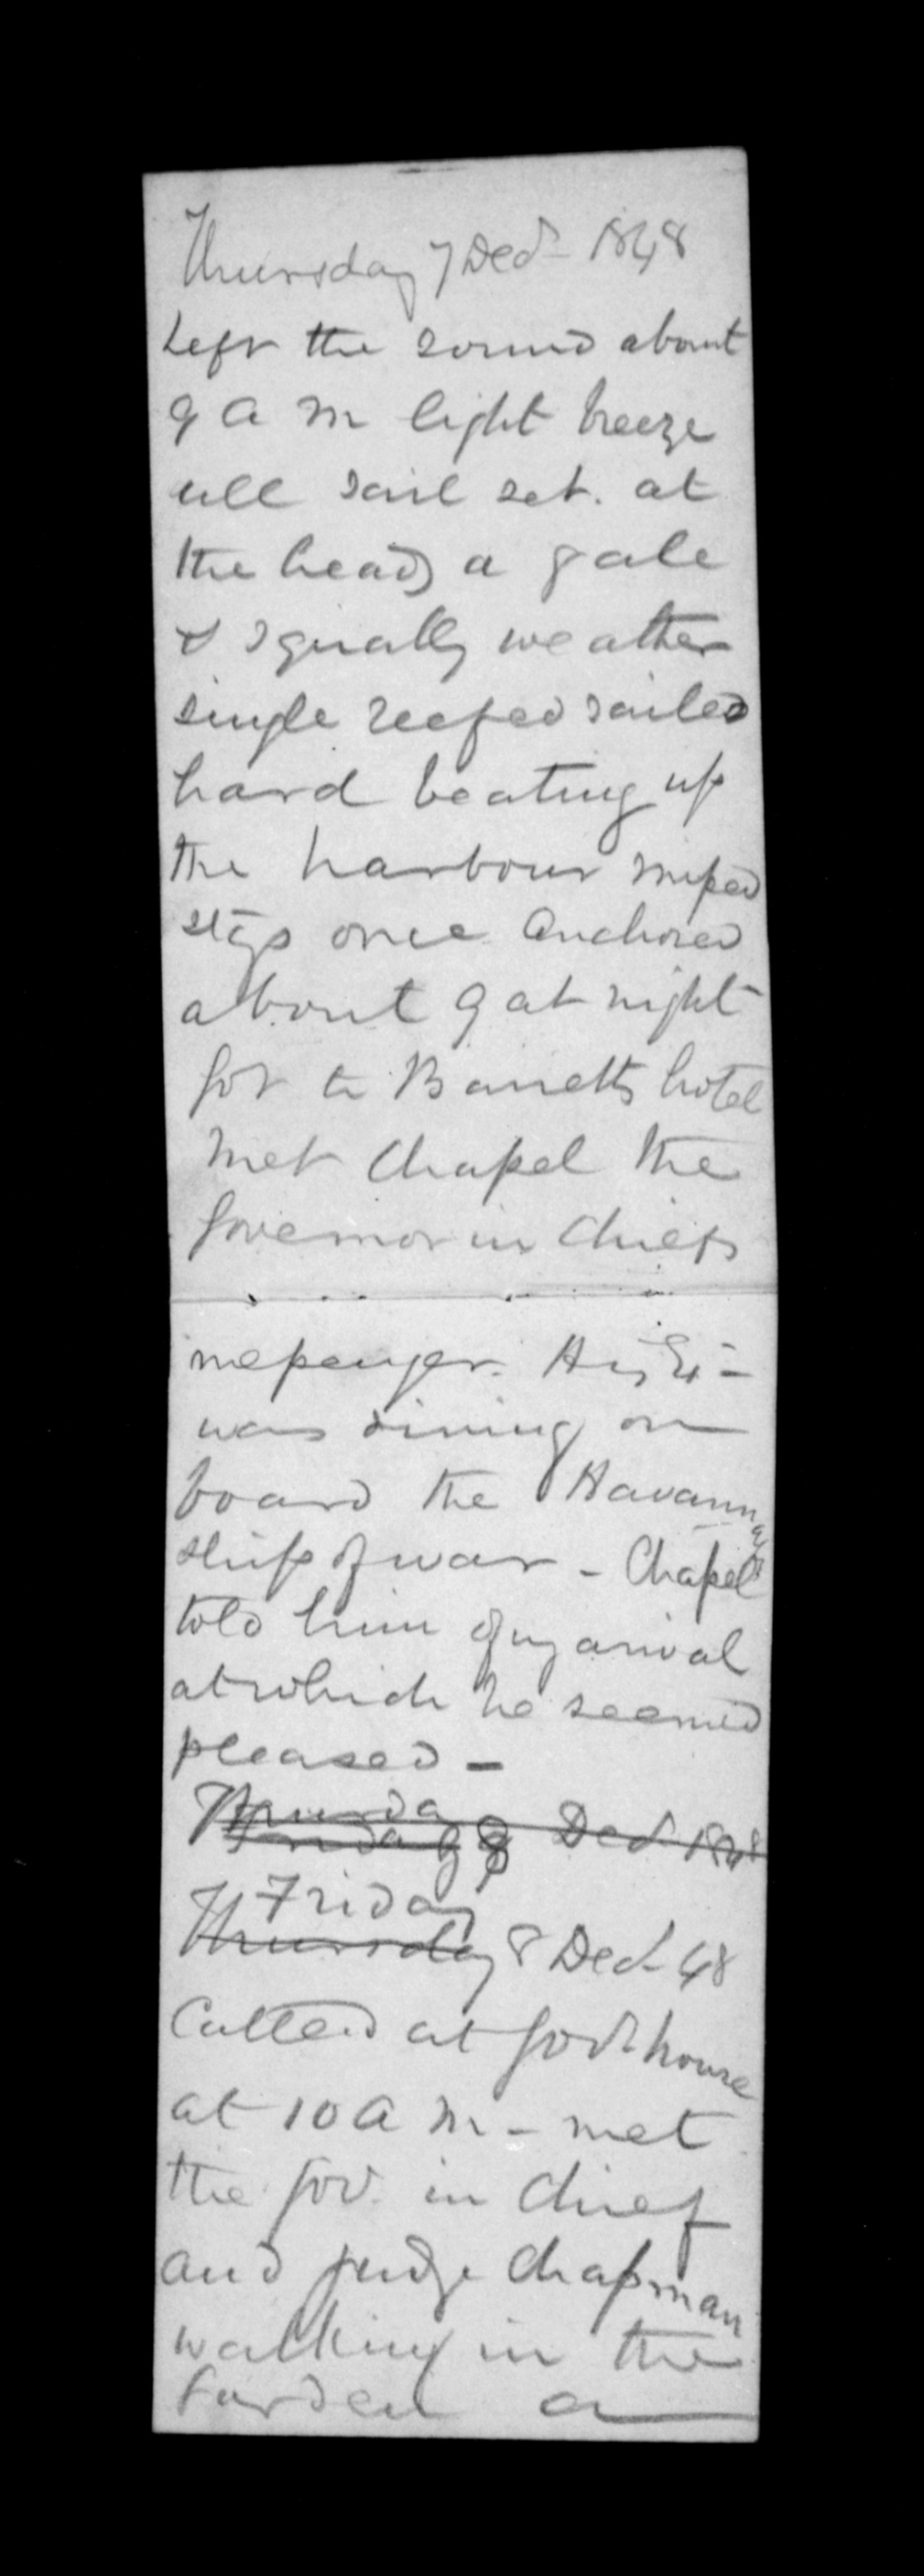 Thursday 7 Decr - 1848
Left the sound about
9 a m light breeze
all sail set. at
the heads a gale
& squally weather
single reefed sailed
hard beating up
the harbour missed
stays once anchored
about 9 at night
got to Barretts hotel
met Chapel the
Governor in Chiefs
messenger. His Ex -
was dining on
board the Havannah
ship of war - Chapel
told him of my arival
at which he seemed
pleased -
Thursday
Friday 8 Decr 1848
Friday
Thursday 8 Decr 48
Called at Govt house
at 10 a m - met
the Gov. in Chief
and judge Chapman
walking in the
Garden a